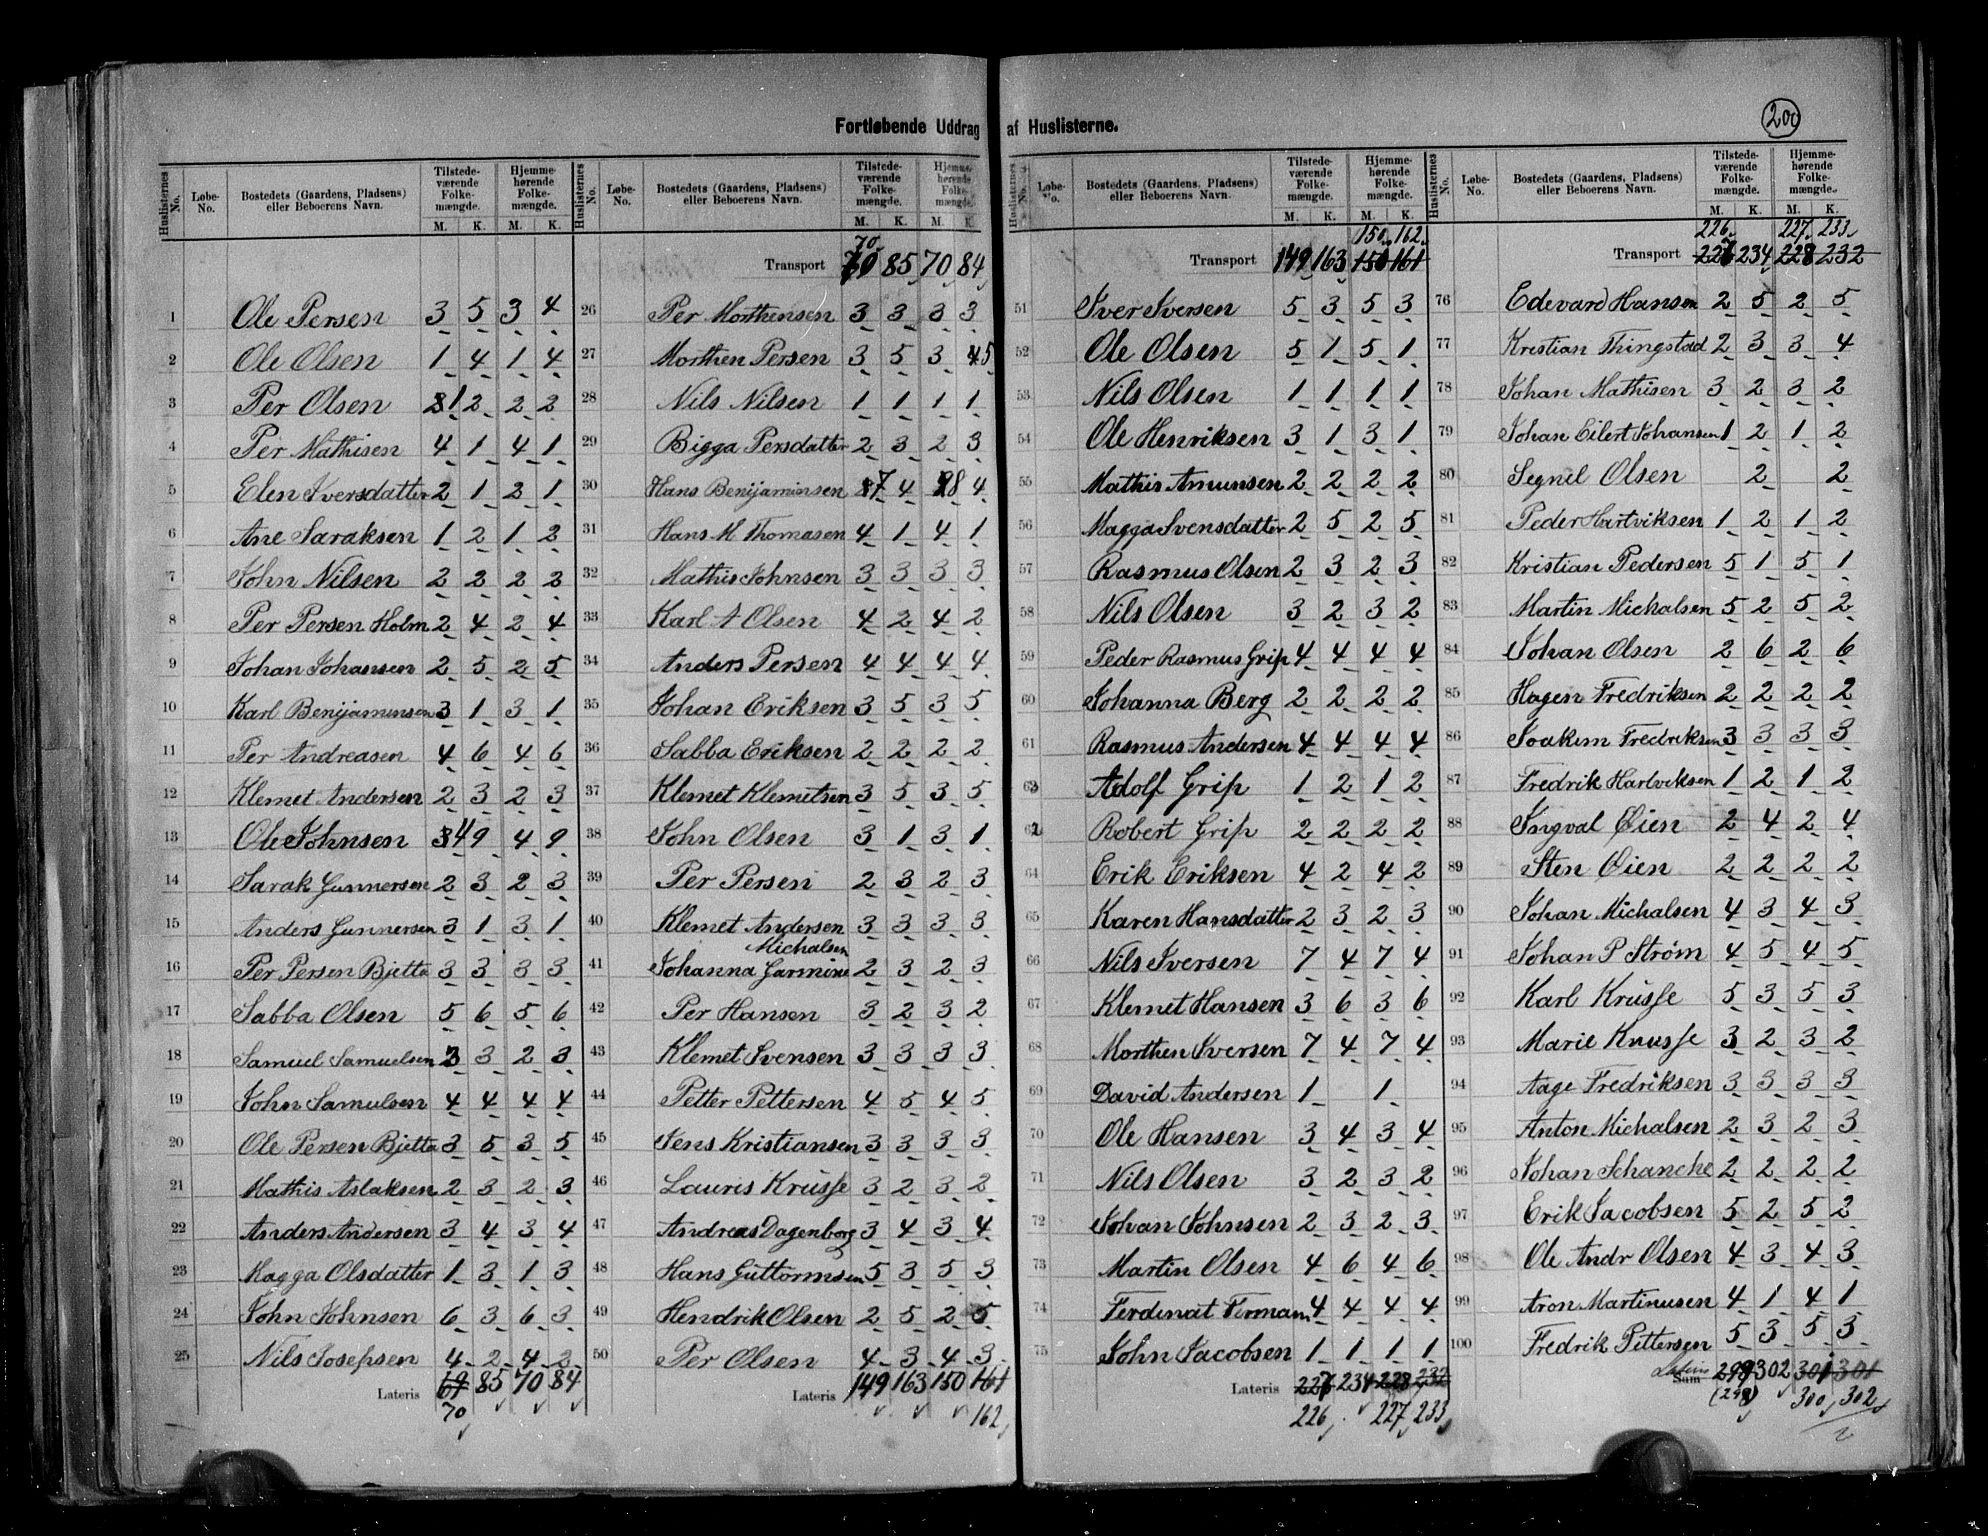 200
Fortløbende Uddrag af Huslisterne.
Huslisternes No. Løbe-No. Bostedets (Gaardens, Pladsens) eller Beboerens Navn. Tilstedeværende Folkemængde. M. K. Hjemmehørende Folkemængde. M. K.
1 Ole Persen 3 5 3 4
2 Ole Olsen 1 4 1 4
3 Per Olsen 1 2 2 2
4 Per Mathisen 4 1 4 1
5 Elen Iversdatter 2 1 2 1
6 Ane Saraksen 1 2 1 2
7 John Nilsen 2 2 2 2
8 Per Persen Holm 2 4 2 4
9 Johan Johansen 2 5 2 5
10 Karl Benijaminsen 3 1 3 1
11 Per Andreasen 4 6 4 6
12 Klemet Andersen 2 3 2 3
13 Ole Johnsen 4 9 4 9
14 Sarak Gunnersen 2 3 2 3
15 Anders Gunnersen 3 1 3 1
16 Per Persen Bjetto 3 3 3 3
17 Sabba Olsen 5 6 5 6
18 Samuel Samuelsen 3 3 2 3
19 John Samulsen 4 4 4 4
20 Ole Persen Bjetto 3 5 3 5
21 Mathis Aslaksen 2 3 2 3
22 Anders Andersen 3 4 3 4
23 Magga Olsdatter 1 3 1 3
24 John Johnsen 6 3 6 3
25 Nils Josefsen 4 2 4 2
Lateris 69 85 70 84
70
Huslisternes No. Løbe-No. Bostedets (Gaardens, Pladsens) eller Beboerens Navn. Tilstedeværende Folkemængde. M. K. Hjemmehørende Folkemængde. M. K.
70
Transport 85 70 84
26 Per Morthensen 3 3 3 3
27 Morthen Persen 3 5 3 5
28 Nils Nilsen 1 1 1 1
29 Bigga Persdatter 2 3 2 3
30 Hans Benijaminsen 7 4 8 4
31 Hans M Thomasen 4 1 4 1
32 Mathis Johnsen 3 3 3 3
33 Karl A Olsen 4 2 4 2
34 Anders Persen 4 4 4 4
35 Johan Eriksen 3 5 3 5
36 Sabba Eriksen 2 2 2 2
37 Klemet Klemetsen 3 5 3 5
38 John Olsen 3 1 3 1
39 Per Persen 2 3 2 3
40 Klemet Andersen 3 3 3 3
Michalsen
41 Johanna Garmine 2 3 2 3
42 Per Hansen 3 2 3 2
43 Klemet Svensen 3 3 3 3
44 Petter Pettersen 4 5 4 5
45 Jens Kristiansen 3 3 3 3
46 Lauris Krüsse 3 2 3 2
47 Andreas Dagenborg 3 4 3 4
48 Hans Guttormsen 5 3 5 3
49 Hendrik Olsen 2 5 2 5
50 Per Olsen 4 3 4 3
Lateris 149 163 150 161
162
Huslisternes No. Løbe-No. Bostedets (Gaardens, Pladsens) eller Beboerens Navn. Tilstedeværende Folkemængde. M. K. Hjemmehørende Folkemængde. M. K.
150 162
Transport 149 163 150 161
51 Iver Iversen 5 3 5 3
52 Ole Olsen 5 1 5 1
53 Nils Olsen 1 1 1 1
54 Ole Henriksen 3 1 3 1
55 Mathis Amunsen 2 2 2 2
56 Magga Svensdatter 2 5 2 5
57 Rasmus Olsen 2 3 2 3
58 Nils Olsen 3 2 3 2
59 Peder Rasmus Grip 4 4 4 4
60 Johanna Berg 2 2 2 2
61 Rasmus Andersen 4 4 4 4
62 Adolf Grip 1 2 1 2
63 Robert Grip 2 2 2 2
64 Erik Eriksen 4 2 4 2
65 Karen Hansdatter 2 3 2 3
66 Nils Iversen 7 4 7 4
67 Klemet Hansen 3 6 3 6
68 Morthen Iversen 7 4 7 4
69 David Andersen 1 1
70 Ole Hansen 3 4 3 4
71 Nils Olsen 3 2 3 2
72 Johan Johnsen 2 3 2 3
73 Martin Olsen 4 6 4 6
74 Ferdinat Firmann 4 4 4 4
75 John Jacobsen 1 1 1 1
Lateris 227 234 228 232
226 227 233
Huslisternes No. Løbe-No. Bostedets (Gaardens, Pladsens) eller Beboerens Navn. Tilstedeværende Folkemængde. M. K. Hjemmehørende Folkemængde. M. K.
226 227 233
Transport 227 234 228 232
76 Edevard Hansen 2 5 2 5
77 Kristian Thingstad 2 3 3 4
78 Johan Mathisen 3 2 3 2
79 Johan Eilert Johansen 1 2 1 2
80 Segnil Olsen 2 2
81 Peder Hartviksen 1 2 1 2
82 Kristian Pedersen 5 1 5 1
83 Martin Michalsen 5 2 5 2
84 Johan Olsen 2 6 2 6
85 Hagen Fredriksen 2 2 2 2
86 Joakim Fredriksen 3 3 3 3
87 Fredrik Hartviksen 1 2 1 2
88 Ingval Øien 2 4 2 4
89 Sten Øien 2 2 2 2
90 Johan Michalsen 4 3 4 3
91 Johan P Strøm 4 5 4 5
92 Karl Krüsse 5 3 5 3
93 Marie Knusse 3 2 3 2
94 Aage Fredriksen 3 3 3 3
95 Anton Michalsen 2 3 2 3
96 Johan Schancke 2 2 2 2
97 Erik Jacobsen 5 2 5 2
98 Ole Andr Olsen 4 3 4 3
99 Aron Martinusen 4 1 4 1
100 Fredrik Pettersen 5 3 5 3
Lateris Sum 299 302 301 301
(298) 300 302